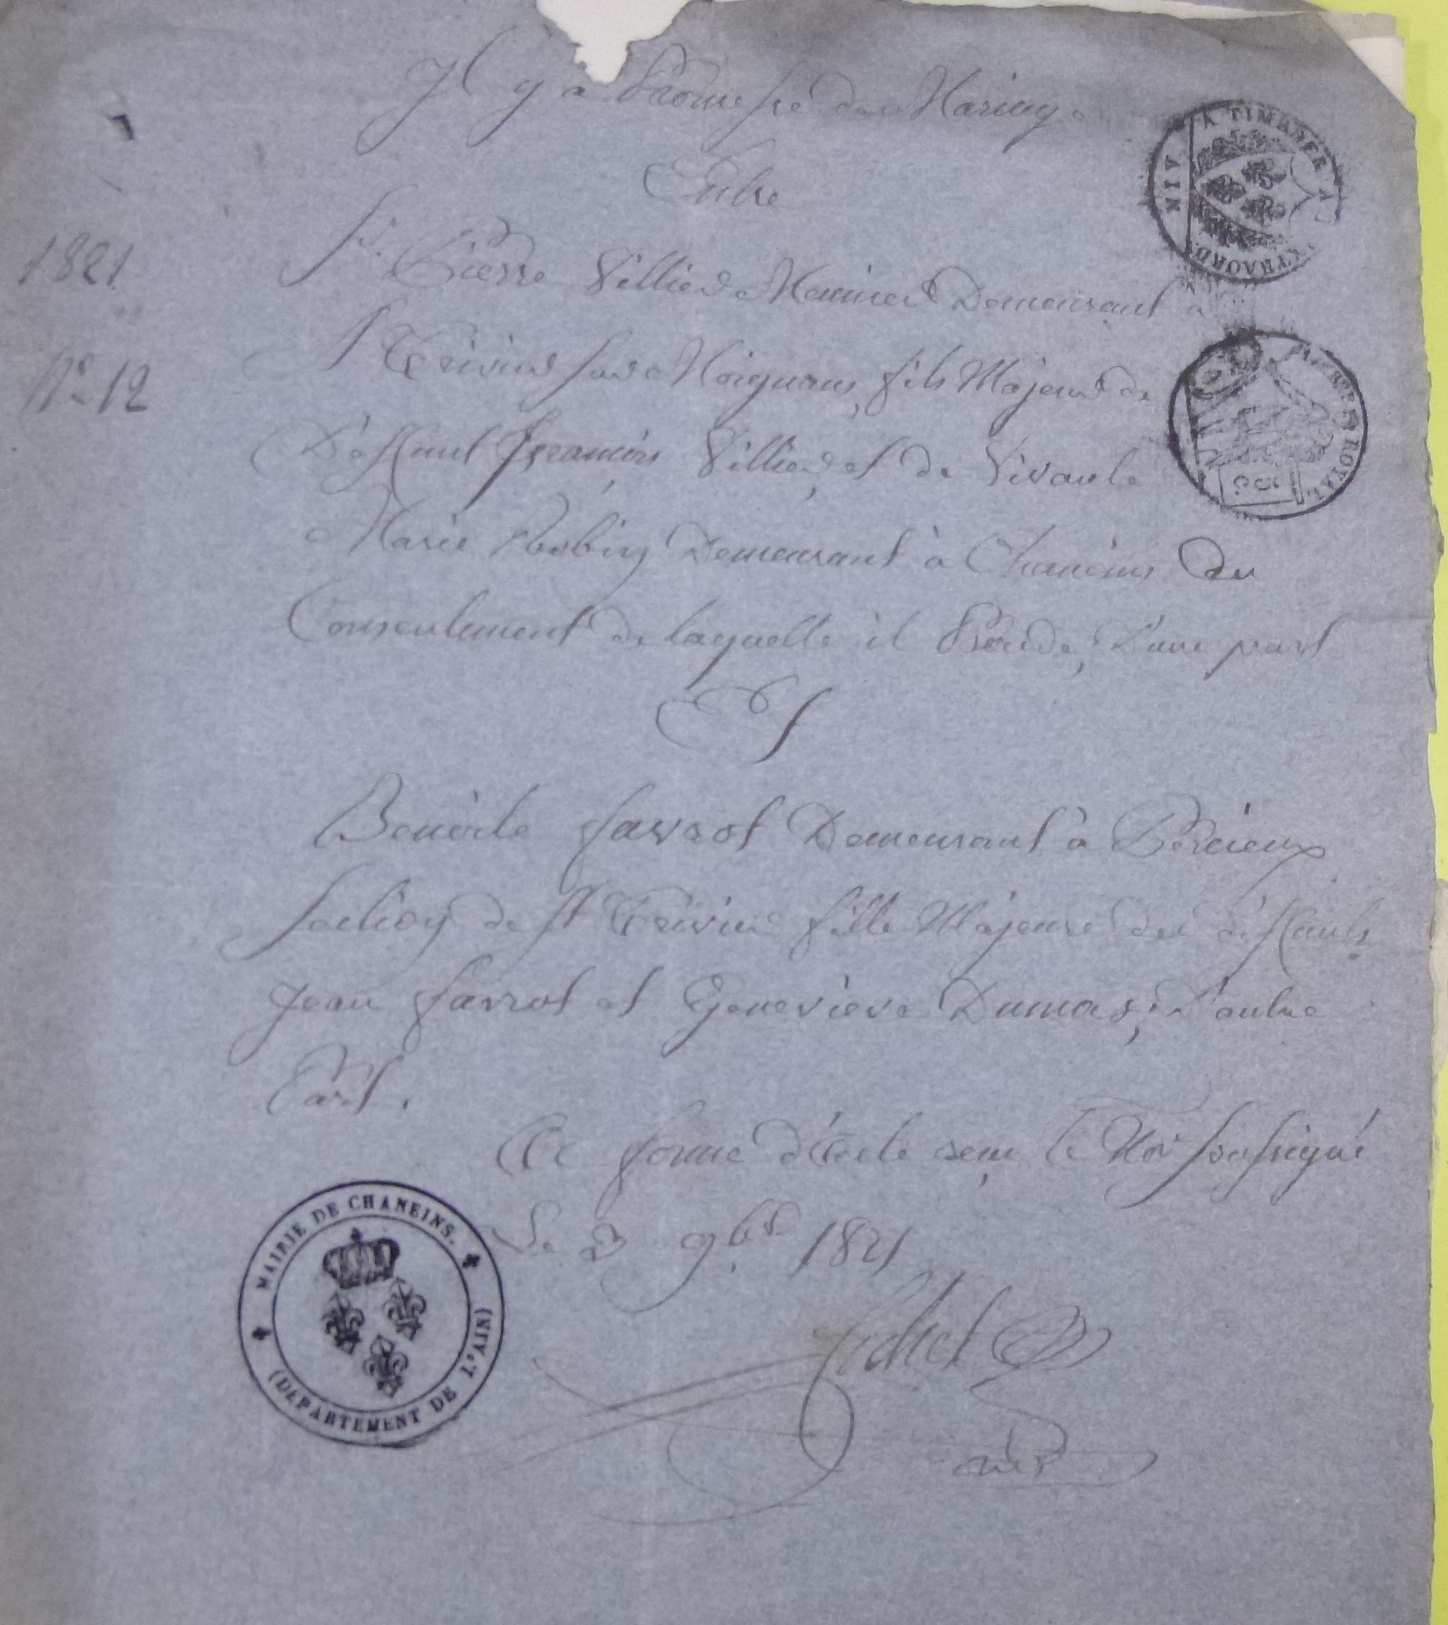 Il y a Promesse de Mariage
Entre
1821
Sr. Pierre Villier Meunier Demeurant à
N° 12
St Trivier sur Moignans, fils Majeur de
Déffunt François Villier, et de Vivante
Marie Robin Demeurant à Chaneins du
Consentement de laquelle il Procède, D'une part
Et
Benoîte favrot Demeurant à Percieux
section de St Trivier fille Majeure des déffunts
Jean favrot et Geneviève Dumas; D'autre
Part.
le 2 9bre 1821
A TIMBRER
EXTRAORD
AIN
ROYAL
MAIRIE DE CHANEINS.
(DÉPARTEMENT DE L'AIN)